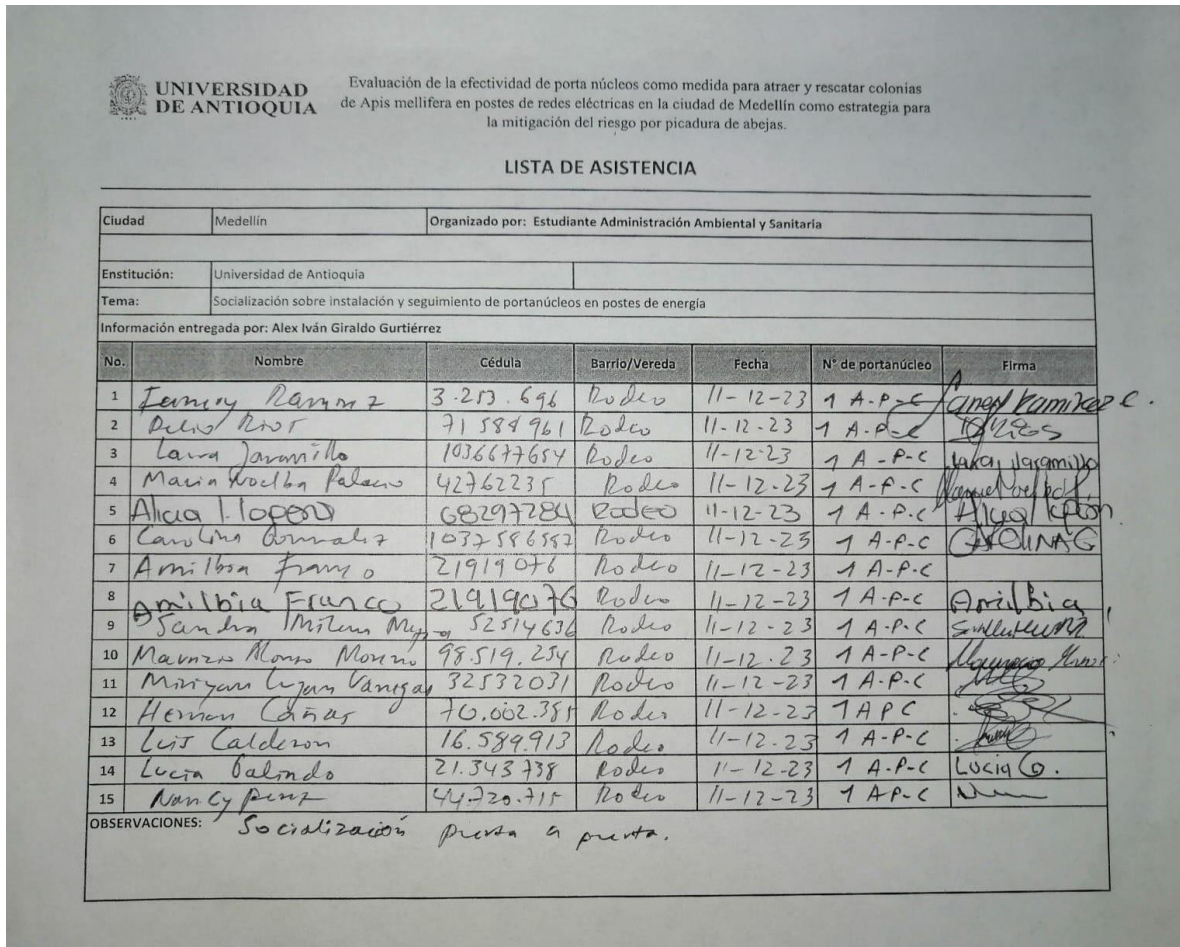 UNIVERSIDAD
DE ANTIOQUIA
Evaluación de la efectividad de porta núcleos como medida para atraer y rescatar colonias
de Apis mellifera en postes de redes eléctricas en la ciudad de Medellín como estrategia para
la mitigación del riesgo por picadura de abejas.
LISTA DE ASISTENCIA
Ciudad Medellín Organizado por: Estudiante Administración Ambiental y Sanitaria
Enstitución: Universidad de Antioquia
Tema: Socialización sobre instalación y seguimiento de portanúcleos en postes de energía
Información entregada por: Alex Iván Giraldo Gurtiérrez
No. Nombre Cédula Barrio/Vereda Fecha N° de portanúcleo Firma
1 Ramirez 3.253.696 Rodeo 11-12-23 1 A-P-C Ramirez C.
2 71584961 Rodeo 11-12-23 1 A-P-C
3 Laura Jaramillo 1036677654 Rodeo 11-12-23 1 A-P-C Jaramillo
4 Maria Noelba Palacio 42762235 Rodeo 11-12-23 1 A-P-C
5 Alicia 68297284 RODEO 11-12-23 1 A-P-C
6 Carolina Gonzalez 1037586587 Rodeo 11-12-23 1 A-P-C CAROLINA G
7 Amilbia Franco 21919076 Rodeo 11-12-23 1 A-P-C
8 Amilbia Franco 21919076 Rodeo 11-12-23 1 A-P-C Amilbia
9 Sandra Milena 52514636 Rodeo 11-12-23 1 A-P-C
10 Moreno 98.519.254 Rodeo 11-12-23 1 A-P-C
11 Vanegas 32532031 Rodeo 11-12-23 1 A-P-C
12 Hernan Cañas 70.002.385 Rodeo 11-12-23 1 A P C
13 Luis Calderon 16.589.913 Rodeo 11-12-23 1 A-P-C
14 Lucia Galindo 21.343738 Rodeo 11-12-23 1 A-P-C Lucia G.
15 Nancy Perez 44.720.715 Rodeo 11-12-23 1 AP-C
OBSERVACIONES: Socialización puerta a puerta.